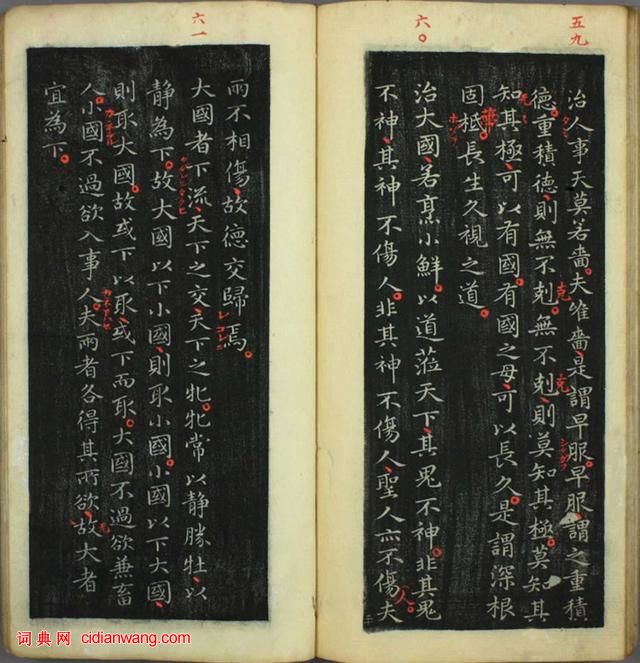 五九
六〇
治人事天莫若嗇夫唯嗇是謂早服早服謂之重積
德重積德則無不剋無不剋則莫知其極莫知其
克
克
知其極可以有國有國之母可以長久是謂深根
固柢長生久視之道
治大國若烹小鮮以道蒞天下其鬼不神非其鬼
不神其神不傷人非其神不傷人聖人亦不傷夫
人
六一
兩不相傷故德交歸焉
大國者下流天下之交天下之牝牝常以静勝牡以
静為下故大國以下小國則取小國小國以下大國
則取大國故或下以取或下而取大國不過欲兼畜
人小國不過欲入事人夫兩者各得其所欲故大者
宜為下
词典网 cidianwang.com